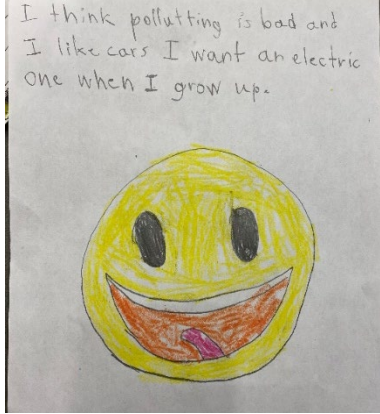 I think pollutting is bad and
I like cars I want an electric
one when I grow up.